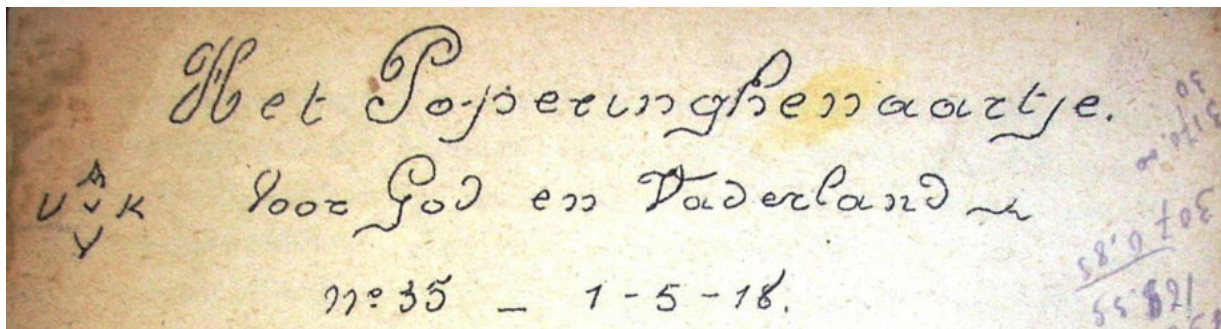 Het Poperinghenaartje.
A
V V K
V
Voor God en Vaderland
nº 35 - 1-5-18.
30
307